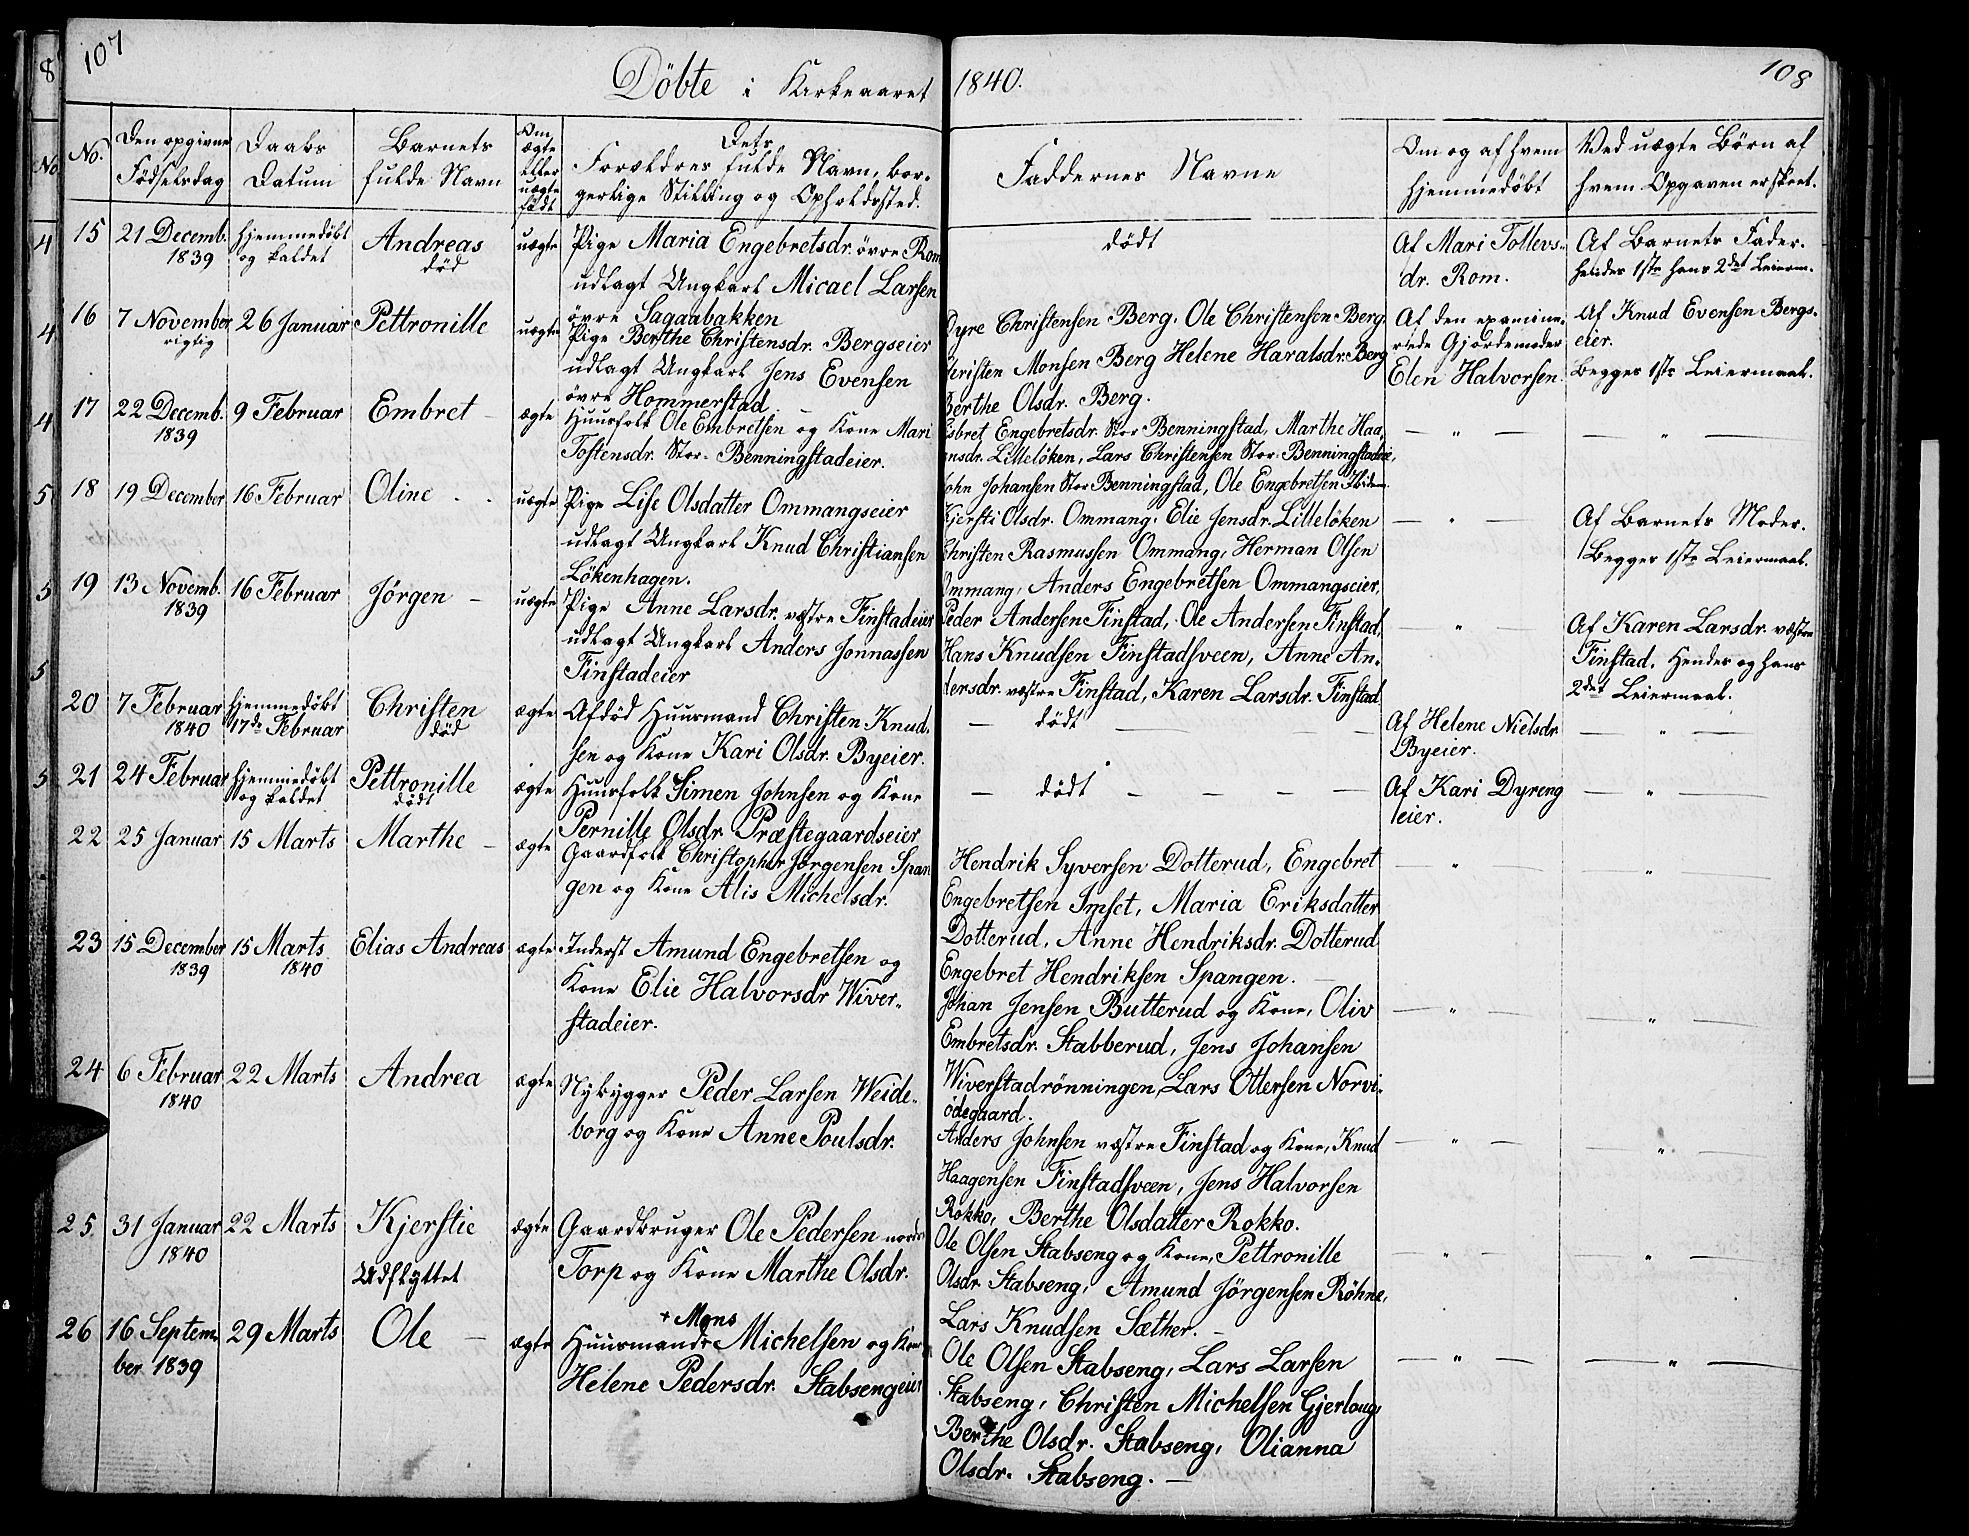 107
Döbte i Kirkeaaret 1840.
108
No.
Den opgivne Födselsdag
Daabs Datum
Barnets fulde Navn
Om ægte eller uægte födt
Dets Forældres fulde Navn, borgerlige Stilling og Opholdssted.
Faddernes Navne
Om og af hvem hjemmedöbt
Ved uægte Börn af hvem Opgaven er skeet.
15 21 Decemb. 1839 hjemmedöbt og kaldet Andreas död uægte
Pige Maria Engebretsdr. övre Rom
udlagt Ungkarl Micael Larsen
övre Sagaabakken
dödt
Af Mari Tollevs-
dr. Rom.
Af Barnets Fader.
hendes 1ste hans 2det Leierm.
16 7 November rigtig 26 Januar Pettronille uægte
Pige Berthe Christensdr. Bergseier
udlagt Ungkarl Jens Evensen
övre Hommerstad
Dyre Christensen Berg, Ole Christensen Berg,
Christen Monsen Berg Helene Haralsdr. Berg
Berthe Olsdr. Berg.
Af den examine-
rede Gjordemoder
Elen Halvorsen
Af Knud Evensen Bergs-
eier.
Begges 1ste Leiermaal.
17 22 Decemb. 1839 9 Februar Embret - ægte
Huusfolk Ole Embretsen og Kone Mari
Tostensdr. Stor-Benningstadeier.
Engebretsdr. Stor Benningstad, Marthe Haa-
Lilleløken, Lars Christensen Stor-Benningstadeie,
John Johansen Stor Benningstad, Ole Engebretsen Ibidem.
— " —
— " —
18 19 December 16 Februar Oline uægte
Pige Lise Olsdatter Ommangseier
udlagt Ungkarl Knud Christiansen
Lökenhagen.
Kjersti Olsdr. Ommang, Elie Jensdr. Lillelöken
Christen Rasmussen Ommang, Herman Olsen
Ommang, Anders Engebretsen Ommangseier,
— " —
Af Barnets Moder.
Begges 1ste Leiermaal.
19 13 Novemb. 1839 16 Februar Jörgen - uægte
Pige Anne Larsdr. vestre Finstadeier
udlagt Ungkarl Anders Jonnassen
Finstadeier
Peder Andersen Finstad, Ole Andersen Finstad,
Hans Knudsen Finstadsveen, Anne An-
dersdr. vestre Finstad, Karen Larsdr. Finstad
— " —
Af Karen Larsdr. vestre
Finstad. Hendes og hans
2det Leiermaal.
20 7 Februar 1840 hjemmedöbt 17de Februar Christen död ægte
Afdöd Huusmand Christen Knud-
sen og Kone Kari Olsdr. Byeier.
— dödt —
Af Helene Nielsdr
Byeier.
— " —
21 24 Februar hjemmedöbt og kaldet Pettronille dödt ægte
Huusfolk Simen Johnsen og Kone
Pernille Olsdr Præstegaardseier
— dödt — — — —
Af Kari Dyreng
eier.
— " —
22 25 Januar 15 Marts Marthe - ægte
Gaardfolk Christopher Jörgensen Span
gen og Kone Alis Michelsdr.
Hendrik Syversen Dotterud, Engebret
Engebretsen Imset, Maria Eriksdatter
Dotterud, Anne Hendriksdr. Dotterud
Engebret Hendriksen Spangen. —
— " —
— " —
23 15 December 1839 15 Marts 1840 Elias Andreas ægte
Inderst Amund Engebretsen og
Kone Elie Halvorsdr Wiver-
stadeier.
Johan Jensen Butterud og Kone, Oliv
Embretsdr. Stabberud, Jens Johansen
Wiverstadrönningen, Lars Ottersen Norvi-
ödegaard.
— " —
— " —
24 6 Februar 1840 22 Marts Andrea ægte
Nybygger Peder Larsen Weide-
borg og Kone Anne Poulsdr.
Anders Johnsen vestre Finstad og Kone, Knud
Haagensen Finstadsveen, Jens Halvorsen
Rokko, Berthe Olsdatter Rokko.
— " —
— " —
25 31 Januar 1840 22 Marts Kjerstie Udflyttet ægte
Gaardbruger Ole Pedersen nordr
Torp og Kone Marthe Olsdr.
Ole Olsen Stabseng og Kone, Pettronille
Olsdr. Stabseng, Amund Jörgensen Röhne,
Lars Knudsen Sæther. —
— " —
— " —
26 16 Septem- ber 1839 29 Marts Ole — ægte
+ Mons
Huusmand + Michelsen og Kone
Helene Pedersdr. Stabsengeier
Ole Olsen Stabseng, Lars Larsen
Stabseng, Christen Michelsen Gjerloug,
Berthe Olsdr. Stabseng, Olianna
Olsdr. Stabseng. —
— " —
— " —
8
No
4
4
4
5
5
5
5